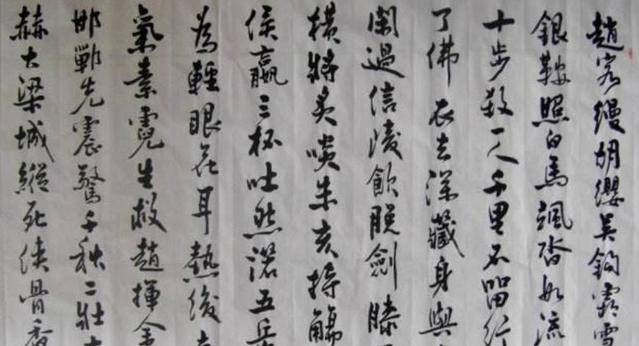 趙客縵胡纓吳鉤霜雪
銀鞍照白馬颯沓如流
十步殺一人千里不留行
了佛衣去深藏身與
閑過信陵飲脫劍膝
橫將炙啖朱亥持觴
侯嬴三杯吐然諾五岳
為輕眼花耳熱後
氣素霓生救趙揮金
邯鄲先震驚千秋二壯
赫大梁城縱死俠骨香